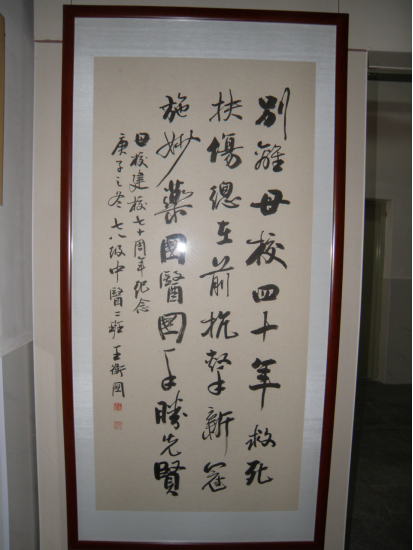 別離母校四十年救死
扶傷總在前抗擊新冠
施妙藥國醫國手勝先賢
母校建校七十周年纪念
庚子之冬七八级中醫二班王衛國